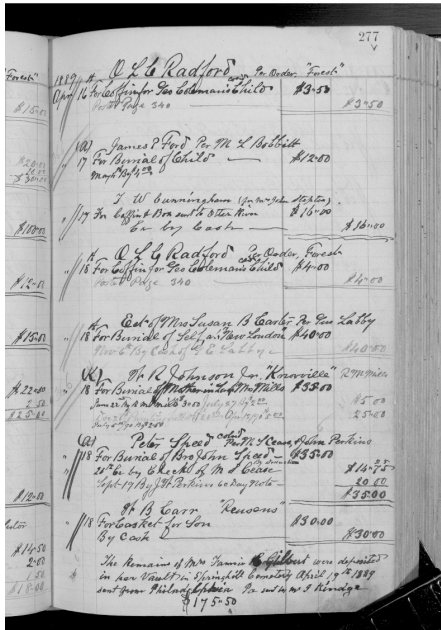 277
1889 A O L C Radford Per Order, "Forest"
Apr 16 For Coffin for Geo Coleman's Child $3-50
Page 340 $3-50
James P Ford Per M L Bobbitt
17 For Burial of Child $12-00
T W Cunningham (for Mr John Stepton)
17 For Coffin & Box sent to Otter River $16-00
Cr by Cash $16-00
A O L C Radford Per Order, Forest
18 For Coffin for Geo Coleman's Child $4-00
Page 340 $4-00
Est of Mrs Susan B Carter Per Labby
18 For Burial of Self, at New London $40-00
$40-00
W R Johnson Jr. "Knoxville"
18 For Burial of Mother in Law Mrs Mills $35-00
$5-00
25-00
Peter Speed cold Per M S Cease, & Jno Perkins
18 For Burial of Bro John Speed $35-00
20th Cr by Check of M S Cease $14-75
Sept 17 By J H Perkins 60 Day Note 20 00
$35 00
W B Carr "Reusens"
18 For Casket for Son $30-00
By Cash $30-00
The Remains of Mrs Fannie Gilbert were deposited
in her Vault in Springhill Cemetery April 19th 1889
sent from Philadelphia
$175-50
"Forest"
$15-00
$100-00
$12-00
$15-00
$22-00
2 50
$12-00
$14-50
2-00
1 50
$18-00